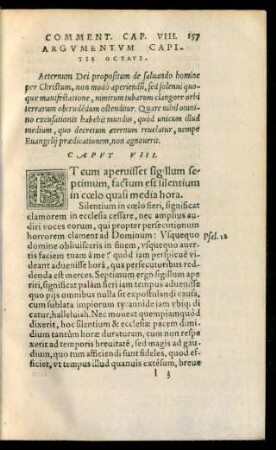 COMMENT. CAP. VIII. 157
ARGVMENTVM CAPI-
TIS OCTAVI.
Aeternum Dei propositum de saluando homine
per Christum, non modò aperiendũ, sed solenni quo-
que manifestatione, nimirum tubarum clangore orbi
terrarum obtrudẽdum ostenditur. Quare nihil omni-
no excusationis habebit mundus, quòd unicum illud
medium, quo decretum æternum reuelatur, nempe
Euangelij prædicationem, non agnouerit.
CAPVT VIII.
ET cum aperuisset sigillum se-
ptimum, factum est silentium
in cœlo quasi media hora.
Silentium in cœlo fieri, significat
clamorem in ecclesia cessare, nec amplius au-
diri voces eorum, qui propter persecutionum
horrorem clament ad Dominum: Vsquequo
domine obliuisceris in finem, vsquequo auer-
tis faciem tuam à me? quòd iam perspicuè vi-
deant aduenisse horã, qua persecutoribus red-
denda est merces. Septimum ergo sigillum ape
riri, significat palàm fieri iam tempus aduenisse
quo pijs omnibus nulla sit expostulandi causa,
cum sublata impiorum tyrannide iam vbiq; di
catur, halleluiah. Nec moueat quempiam quòd
dixerit, hoc silentium & ecclesiæ pacem dimi-
dium tantùm horæ duraturum, cum non respe
xerit ad temporis breuitatẽ, sed magis ad gau-
dium, quo tum afficiendi sunt fideles, quod ef-
ficiet, vt tempus illud quanuis excedens, breue
Psal. 12
l 3